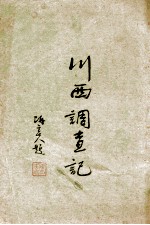 川西調查記